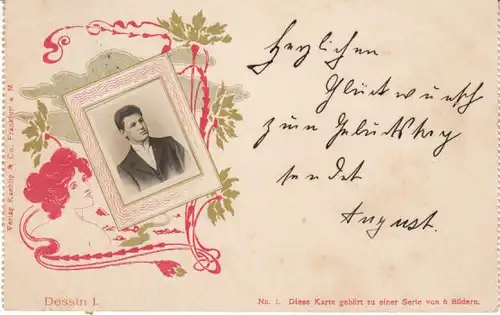 Herzlichen
Glückwunsch
zum Geburtstag
sendet
August.
Verlag Knackstedt & Co. Frankfurt a. M.
Dessin 1.
No. 1. Diese Karte gehört zu einer Serie von 6 Bildern.